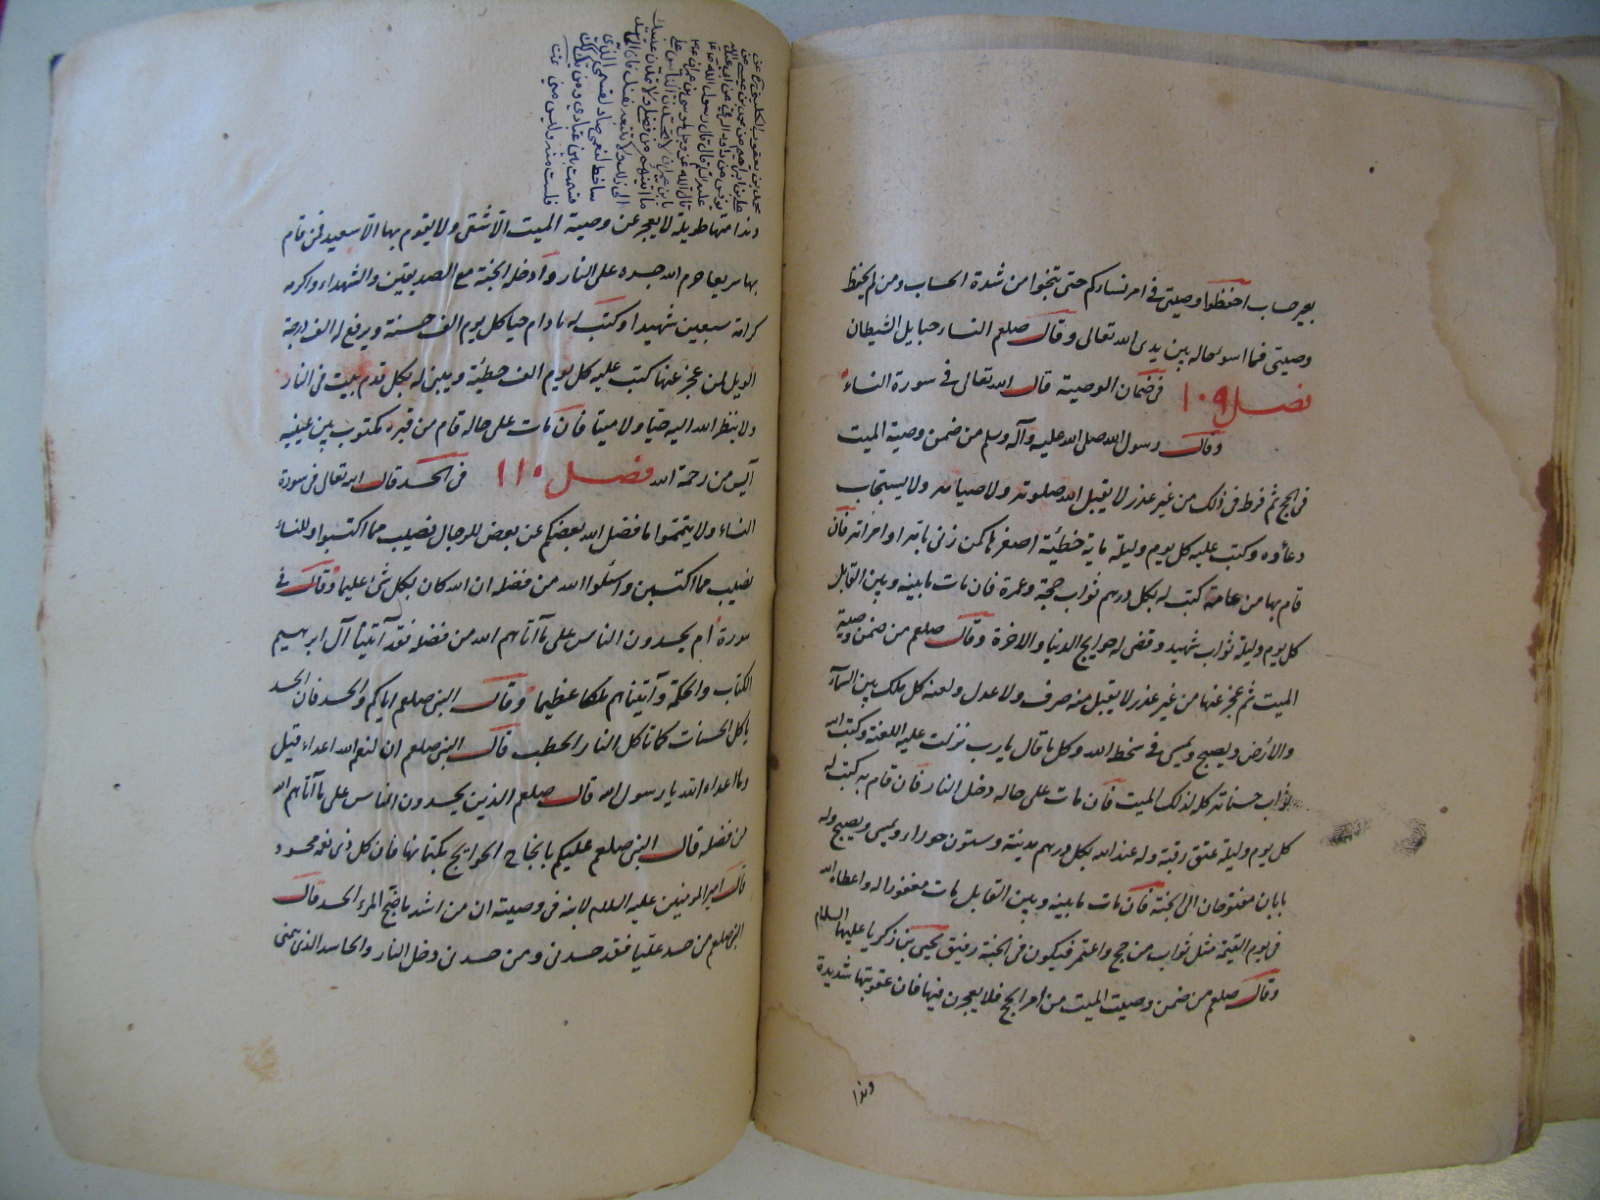 بغير حساب احفظوا وصيتي في امر نساءكم حتى تنجوا من شدة الحساب ومن لم يحفظ
وصيتي فما اسوء حاله بين يدى الله تعالى وقال صلعم النساء حبايل الشيطان
فصل ١٠٩ في ضمان الوصية قال الله تعالى في سورة النساء
وقال رسول الله صلى الله عليه وآله وسلم من ضمن وصية الميت
في الحج ثم فرط في ذلك من غير عذر لا يقبل الله صلوته ولا صيامه ولا يستجاب
دعاؤه وكتب عليه كل يوم وليلة ماية خطيئة اصغرها كمن زنى بامه او امراته فان
قام بها من عامه كتب له بكل درهم ثواب حجة وعمرة فان مات ما بينه وبين القابل
كل يوم وليلة ثواب شهيد وقضى له حوايج الدنيا والاخرة وقال صلعم من ضمن وصية
الميت ثم عجز عنها من غير عذر لا يقبل منه صرف ولا عدل ولعنه كل ملك بين السماء
والأرض ويصبح ويمسى في سخط الله وكل ما قال يا رب نزلت عليه اللعنة وكتب الله
ثواب حسناته كله لذلك الميت فان مات على حاله دخل النار فان قام به كتب له
كل يوم وليلة عتق رقبة وله عند الله بكل درهم مدينة وستون حوراء ويمسى ويصبح وله
بابان مفتوحان الى الجنة فان مات ما بينه وبين القابل مات مغفورا له واعطاه الله
في يوم القيمة مثل ثواب من حج واعتمر فيكون في الجنة رفيق يحيى بن زكريا عليهما السلام
وقال صلعم من ضمن وصيت الميت من امر الحج فلا يعجزن فيها فان عقوبتها شديدة
وندا
محمد بن يعقوب الكليني عن
علي بن ابراهيم عن محمد بن عيسى عن
يونس عن داود الرقي عن ابي عبد الله
عليه السلام قال قال رسول الله ص
قال الله عز وجل لموسى بن عمران
يابن عمران لا تحسدن الناس على
ما آتيتهم من فضلي ولا تمدن عينيك
الى ذلك ولا تتبعه نفسك فان الحاسد
ساخط لنعمي صاد لقسمي الذي
قسمت بين عبادي ومن يك كذلك
فلست منه وليس مني
وندامتها طويلة لا يعجز عن وصية الميت الا شقى ولا يقوم بها الا سعيد فمن قام
بها سريعا حرم الله جسده على النار وادخل الجنة مع الصديقين والشهداء واكرمه
كرامة سبعين شهيدا وكتب له ما دام حيا كل يوم الف حسنة ويرفع له الف درجة
الويل لمن عجز عنها كتب عليه كل يوم الف خطيئة ويبنى له بكل قدم بيت في النار
ولا ينظر الله اليه حيا ولا ميتا فان مات على حاله قام من قبره مكتوب بين عينيه
آيس من رحمة الله فصل ١١٠ في الحسد قال الله تعالى في سورة
النساء ولا يتمتوا ما فضل الله بعضكم على بعض للرجال نصيب مما اكتسبوا وللنساء
نصيب مما اكتسبن واسئلوا الله من فضله ان الله كان بكل شئ عليما وقال في
سورة ام يحسدون الناس على ما آتاهم الله من فضله فقد آتينا آل ابرهيم
الكتاب والحكمة وآتيناهم ملكا عظيما وقال النبي صلعم اياكم والحسد فان الحسد
يأكل الحسنات كما تاكل النار الحطب قال النبي صلعم ان لنعم الله اعداء قيل
وما اعداء الله يا رسول الله قال صلعم الذين يحسدون الناس على ما آتاهم الله
من فضله قال النبي صلعم عليكم بانجاح الحوايج بكتمانها فان كل ذي نعمة محسود
قال امير المومنين عليه السلام لابنه في وصيته ان من اشد ما فضح المرء الحسد قال
النبي صلعم من حسد عليا فقد حسدني ومن حسدني دخل النار والحاسد الذي يتمنى